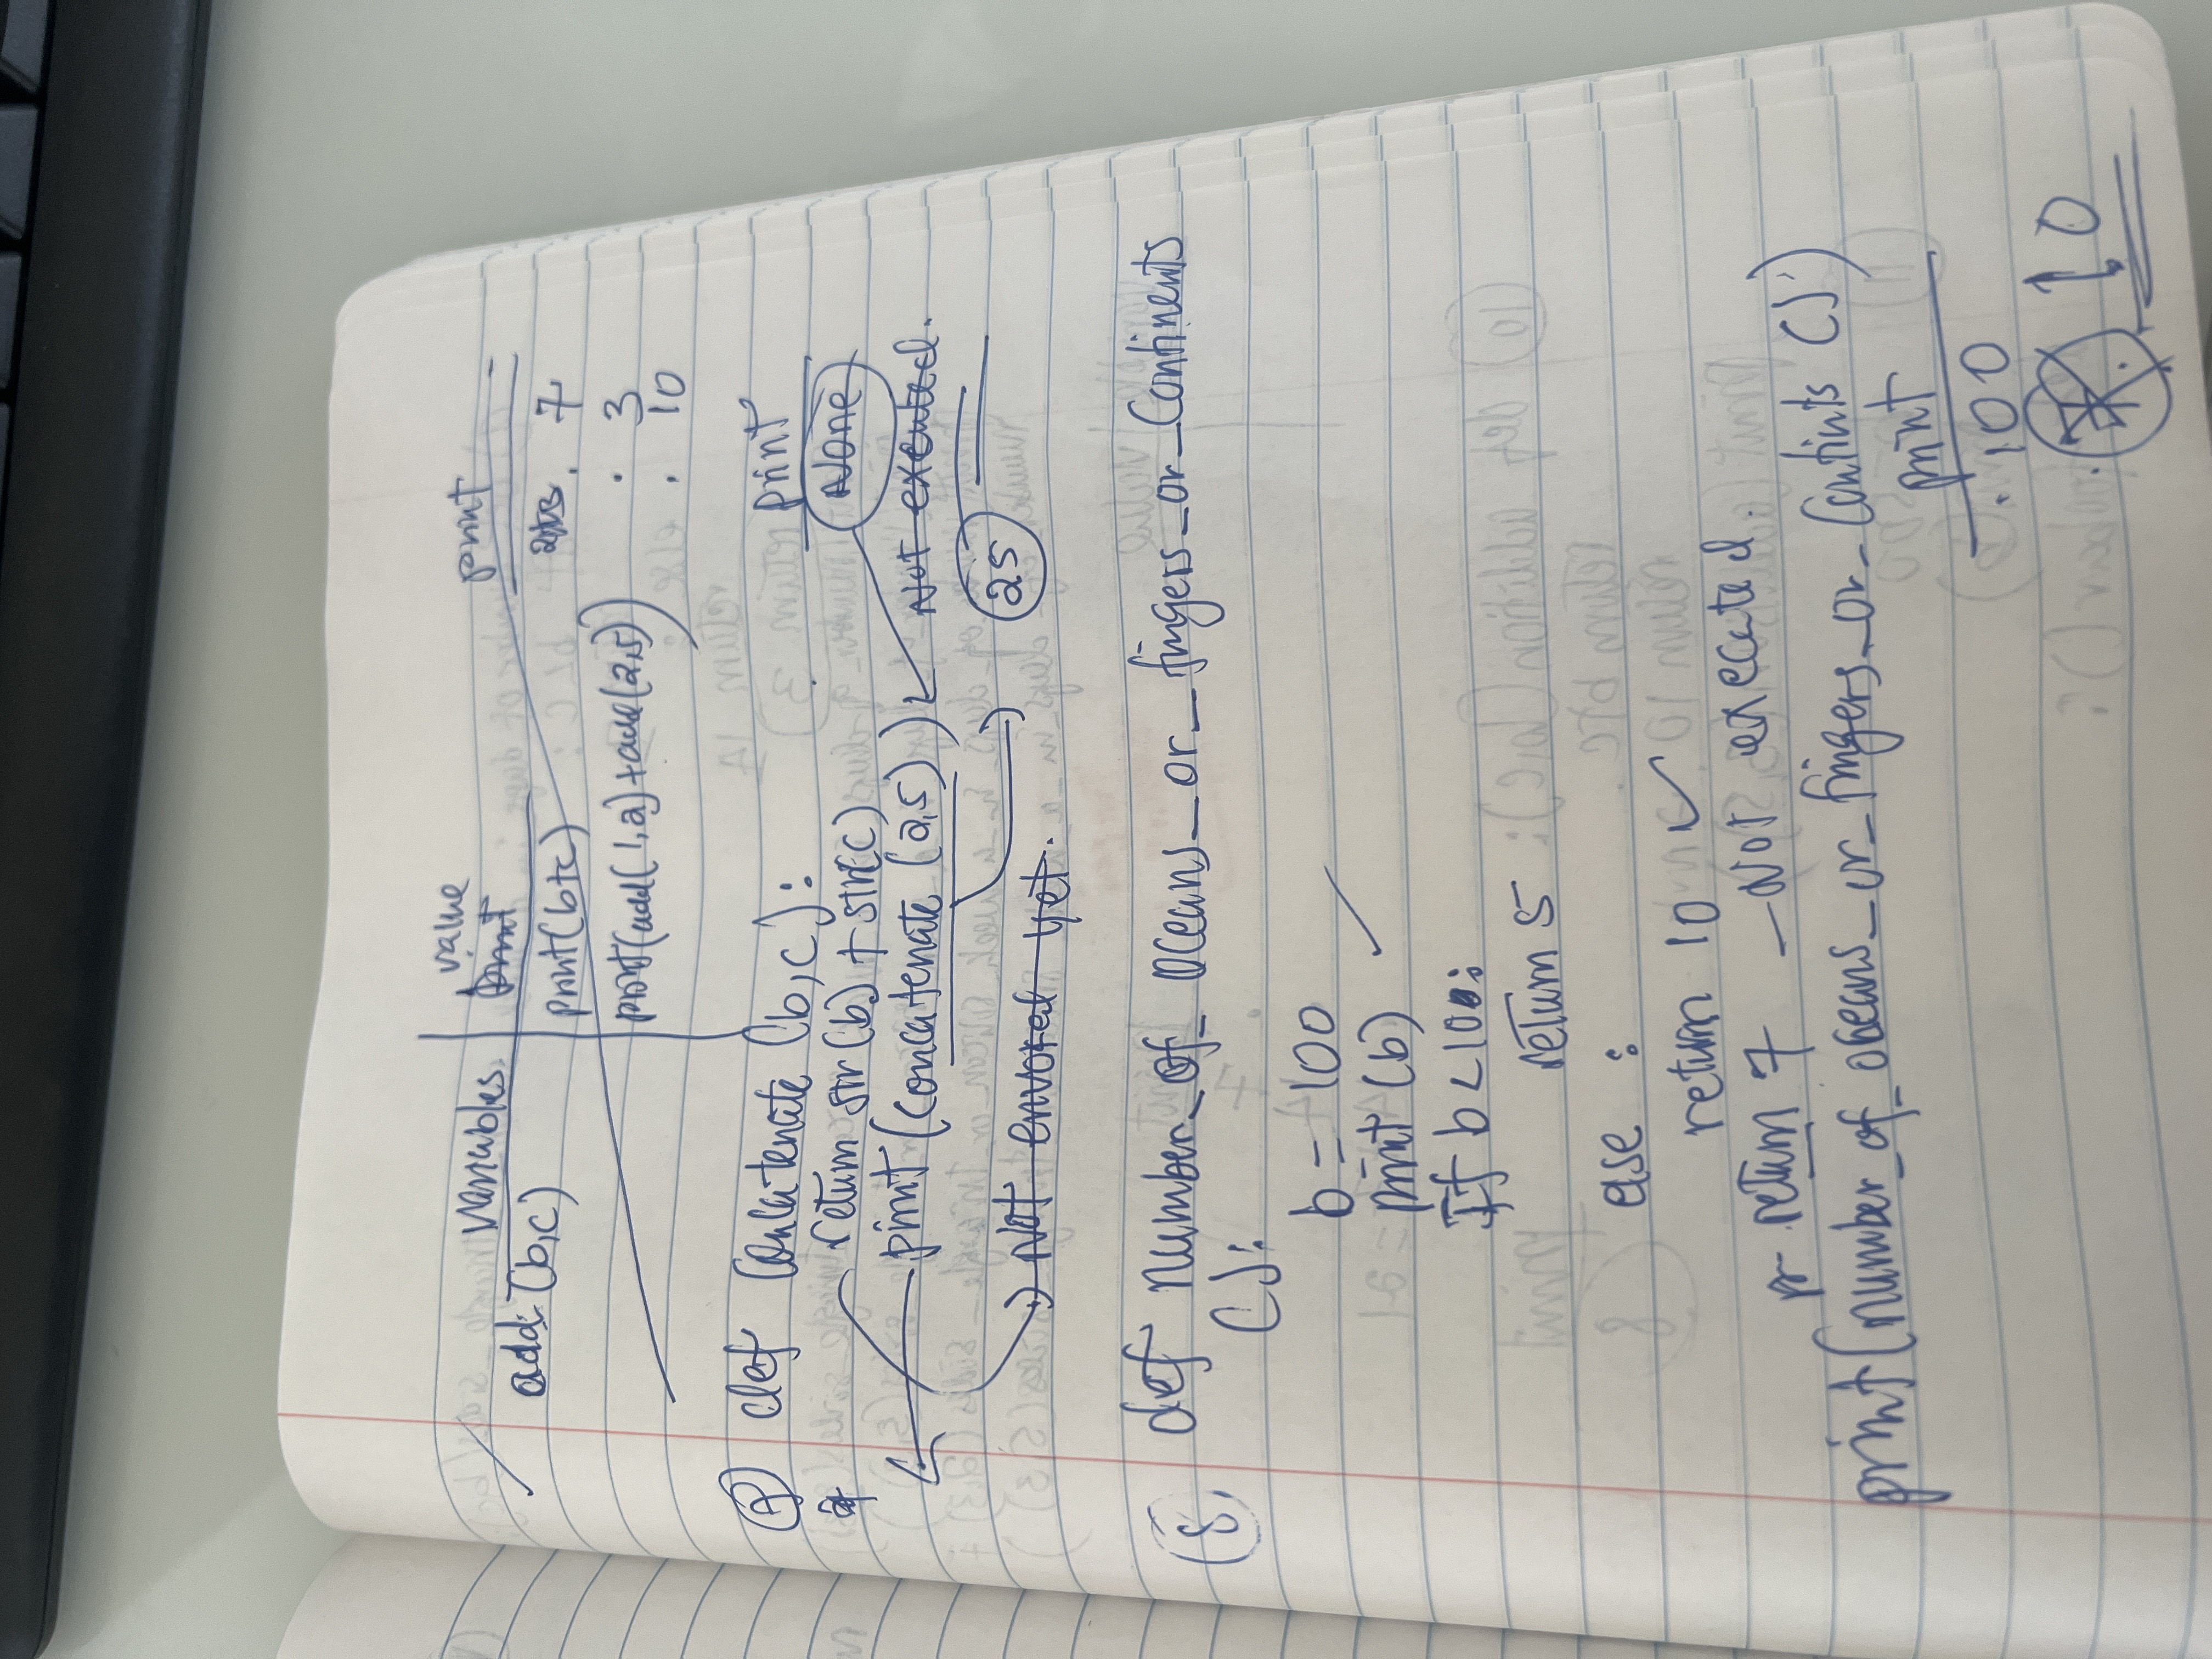 Variables. value print
print
add: (b,c)
print(b+c) . 7
print(add(1,2)+add(2,5)) . 3
. 10
⑦ def Concatenate (b,c): print
return str(b) + str(c) None
print(Concatenate (2,5)) Not excuted.
25
Not envoked yet.
⑧ def number_of_Oceans_or_fingers_or_Continents
():
b = 100
print (b) ✓
If b < 100:
return 5
else :
return 10 ✓
return 7 — Not executed.
print(number_of_oceans_or_fingers_or_Contints ())
print
. 100
. 10